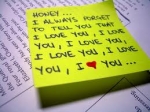 HONEY...
I ALWAYS FORGET
TO TELL YOU THAT
I LOVE YOU, I LOVE
YOU, I LOVE YOU,
I LOVE YOU, I LOVE
YOU, I ❤ YOU ...